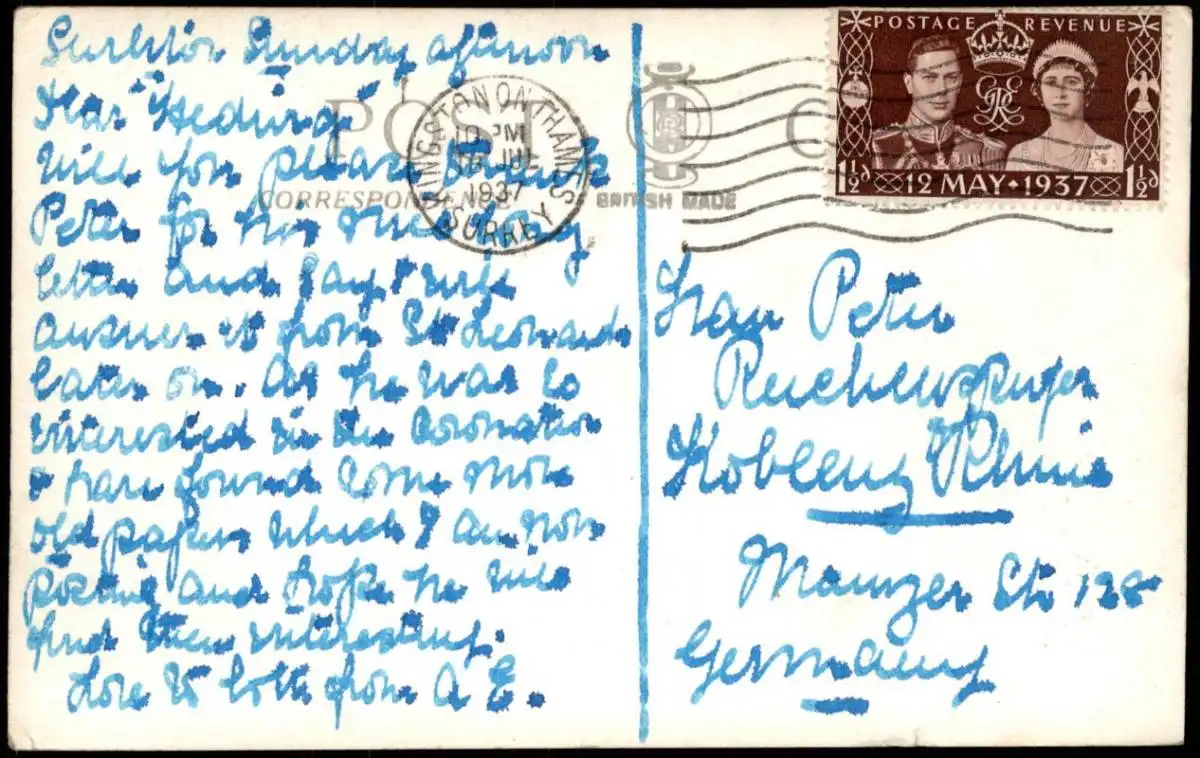 Surbiton Sunday afternoon
Dear Hedwig
will you please thank
Peter for his interesting
letter and say I will
answer it from St Leonards
later on. As he was so
interested in the Coronation
I have found some more
old papers which I am now
posting and hope he will
find them interesting.
Love to both from A E.
POST C
CORRESPONDENCE
BRITISH MADE
KINGSTON ON THAMES
10 PM
JUL
1937
SURREY
POSTAGE REVENUE
1½d 12 MAY · 1937 1½d
Frau Peter
Reichensperger
Koblenz Rhein
Mainzer Str 128
Germany